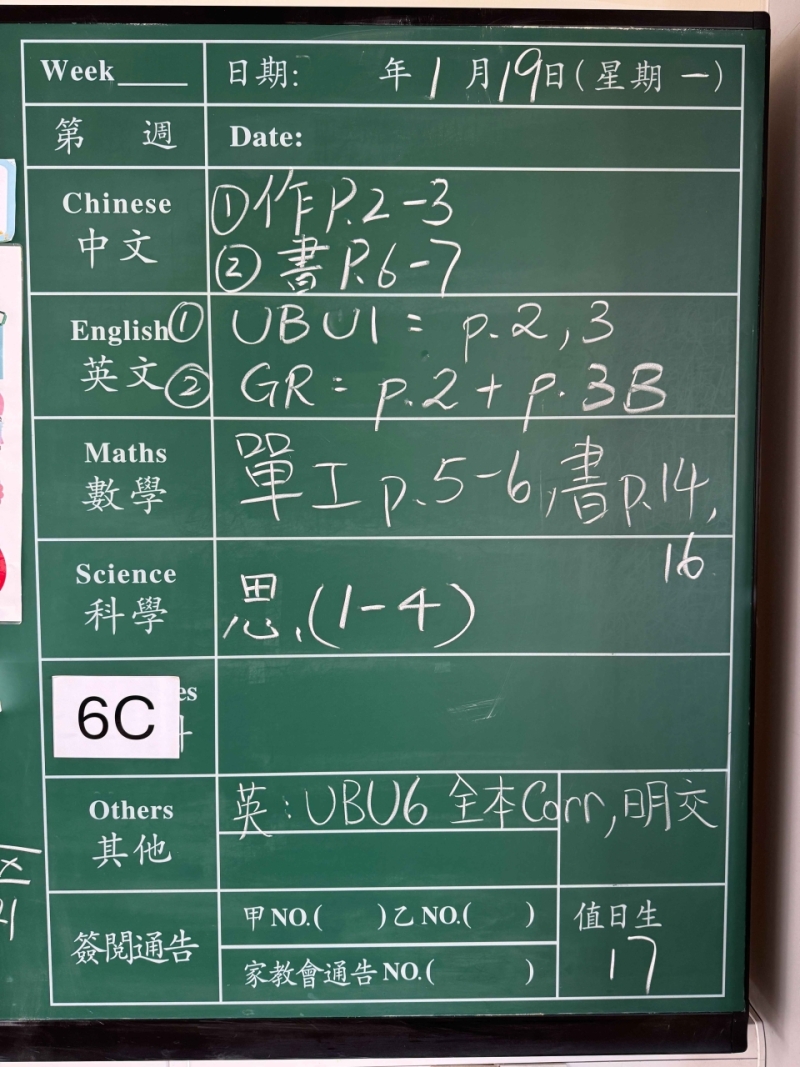 Week____ 日期: 年 1 月 19 日(星期 一)
第 週 Date:
Chinese
中文
①作P.2-3
②書P.6-7
English① UBU1 = p.2,3
英文② GR = p.2 + p.3B
Maths
數學
單工p.5-6,書p.14,
16
Science
科學
思、(1-4)
es
6C
Others
其他
英:UBU6 全本Corr,明交
簽閱通告
甲NO.( )乙NO.( )
家教會通告NO.( )
值日生
17